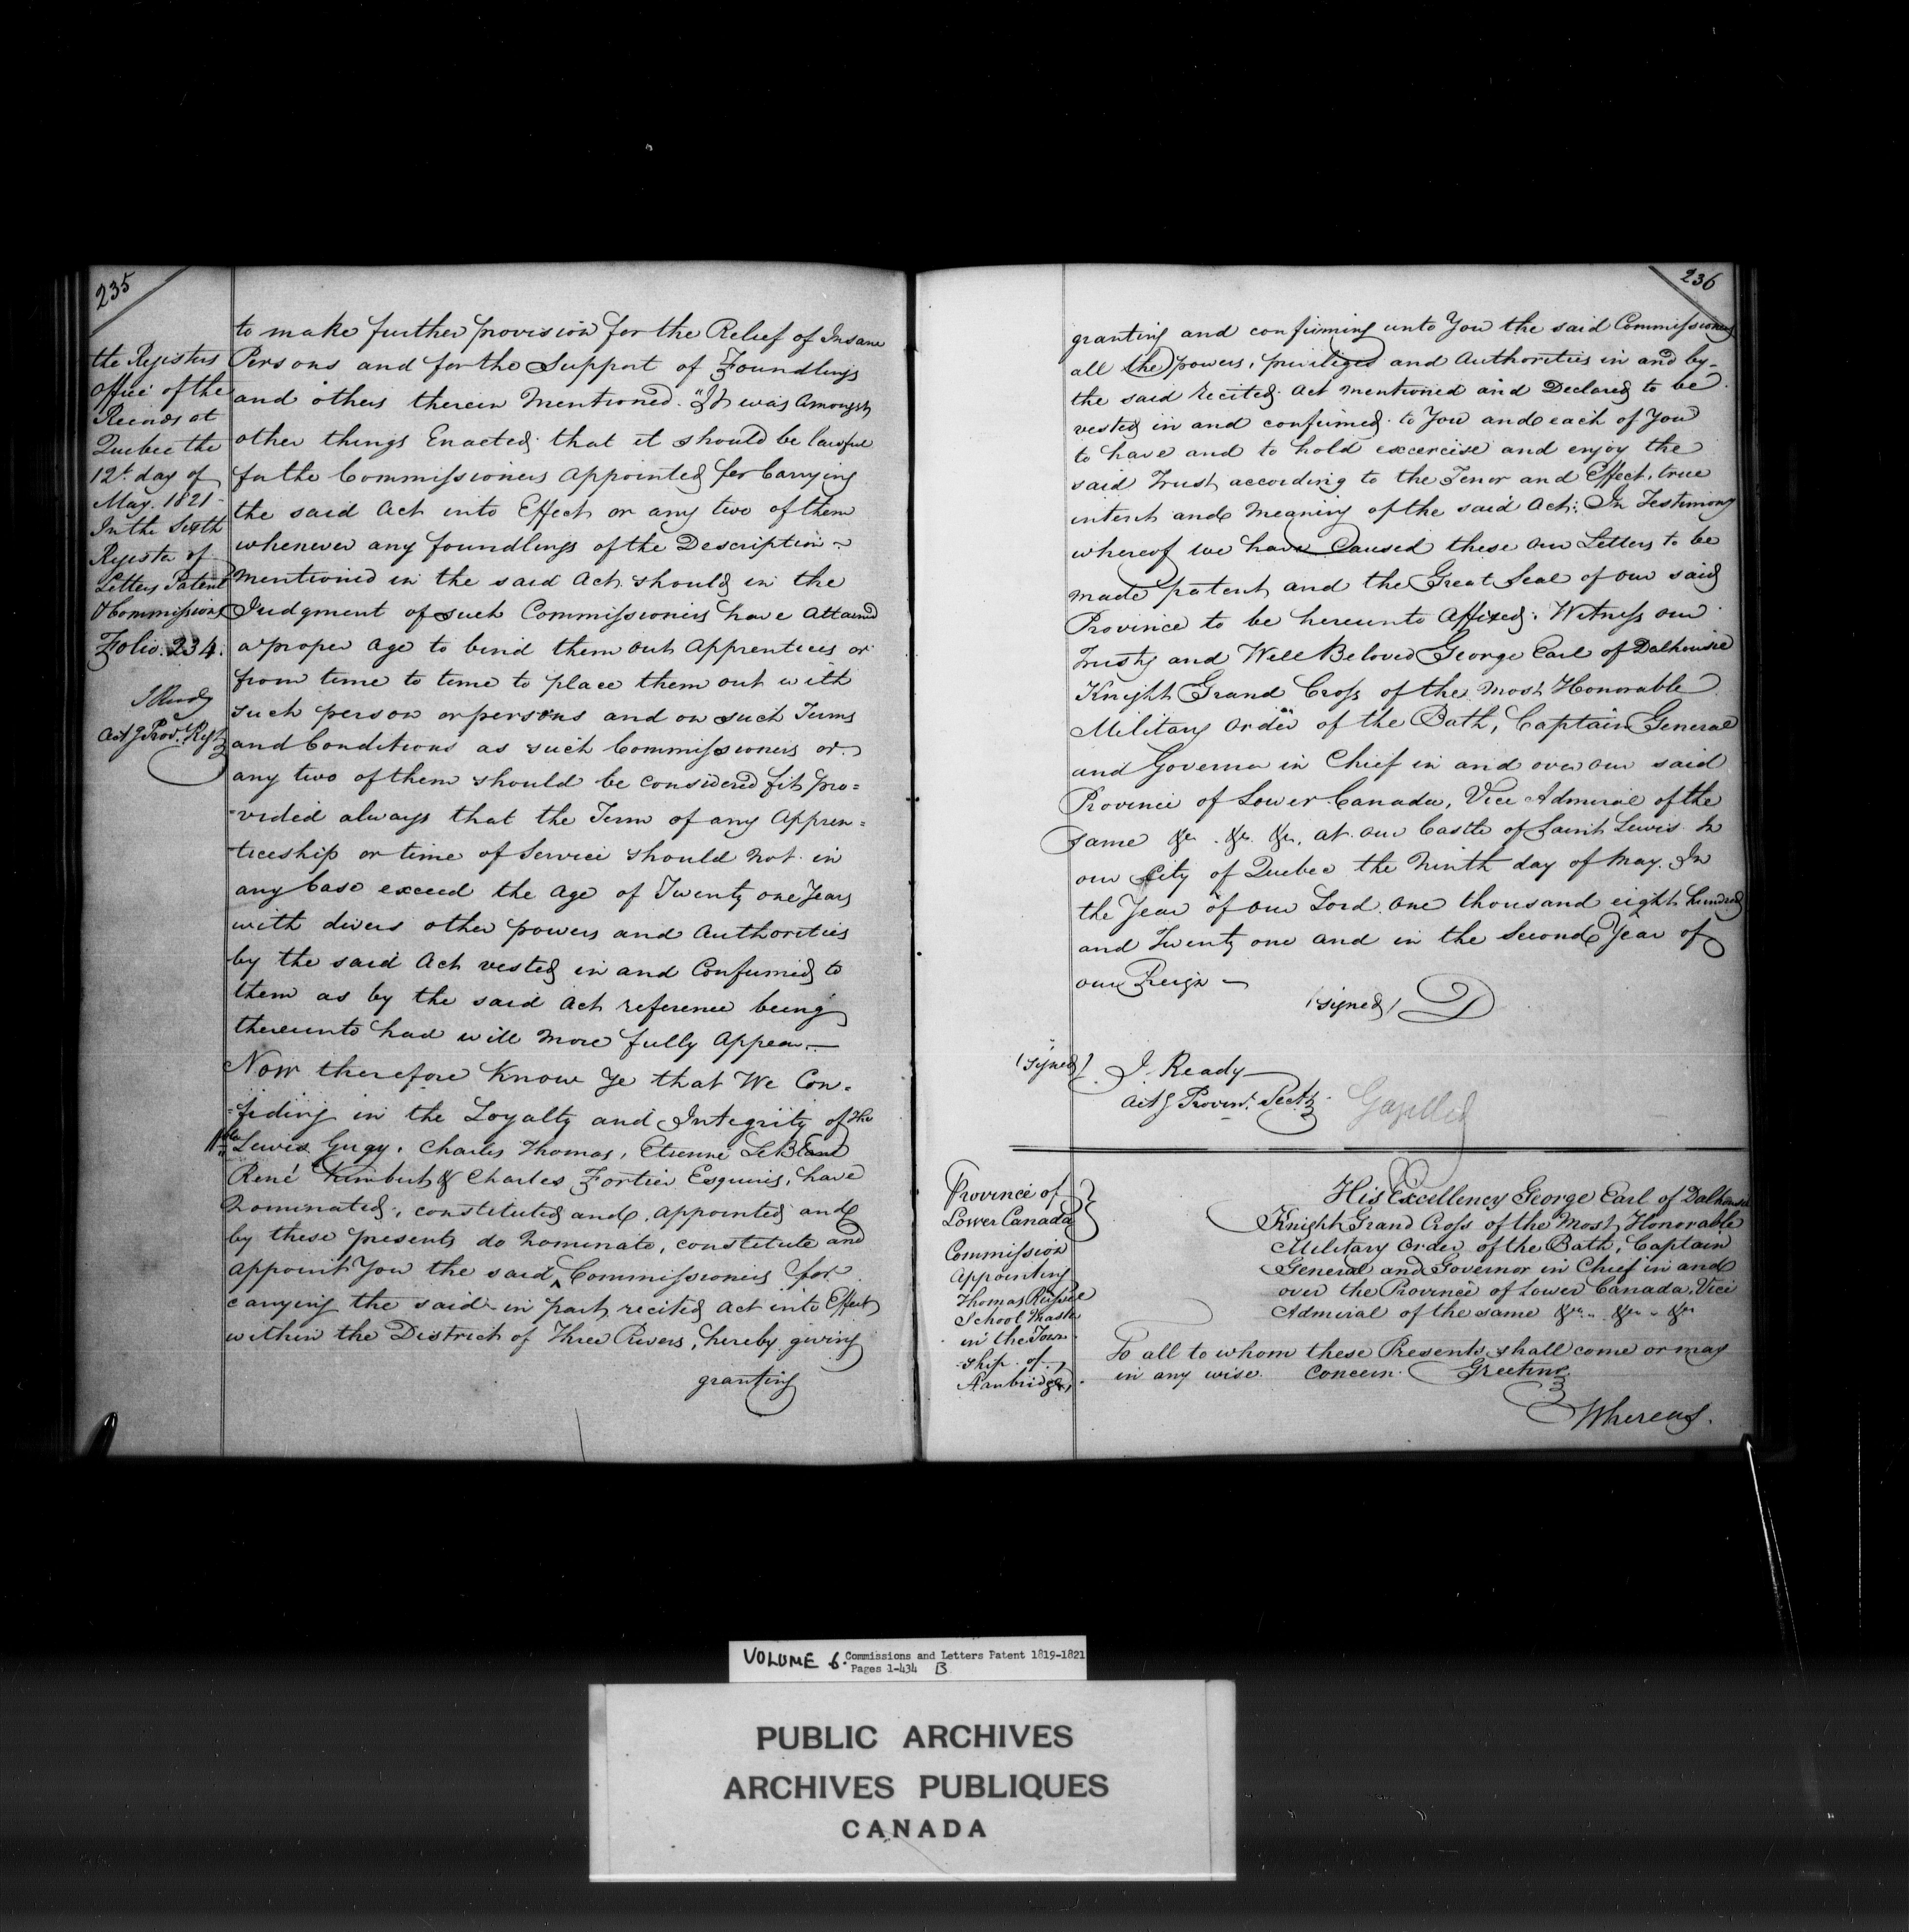 235
the Registers
Office of the
Records at
Quebec the
12t. day of
May. 1821
In the Sixth
Register of
Letters Patent
& Commissions
Folio. 234.
J Ready
Actg Prov.l Regt
to make further provision for the Relief of Insane
Persons and for the Support of Foundlings
and others therein Mentioned. "It was Amongst
other things Enacted that it should be lawful
for the Commissioners Appointed for Carrying
the said Act into Effect or any two of them
whenever any foundlings of the Description
mentioned in the said Act should in the
Judgment of such Commissioners have Attained
a proper Age to bind them out Apprentices or
from time to time to place them out with
such person or persons and on such Terms
and Conditions as such Commissioners or
any two of them should be considered fit pro=
=vided always that the Term of any Appren=
=ticeship or time of Service should not in
any Case exceed the Age of Twenty one Years
with divers other powers and Authorities
by the said Act vested in and Confirmed to
them as by the said Act reference being
thereunto had will more fully Appear.—
Now therefore Know Ye that We Con=
=fiding in the Loyalty and Integrity of the
Honble Lewis Gugy, Charles Thomas, Etienne LeBlanc
René Kimbert & Charles Fortier Esquires, have
Nominated, constituted and appointed and
by these presents do Nominate, constitute and
appoint You the said Commissioners for
carrying the said in part recited Act into Effect
within the District of Three Rivers, hereby giving
granting
236
granting and confirming unto You the said Commissioners
all the powers, priviliges and Authorities in and by
the said recited Act mentioned and Declared to be
vested in and confirmed to You and each of You
to have and to hold excercise and enjoy the
said Trust according to the Tenor and Effect, true
intent and Meaning of the said Act; In Testimony
whereof we have Caused these our Letters to be
made patent and the Great Seal of our said
Province to be hereunto Affixed: Witness our
Trusty and Well Beloved George Earl of Dalhousie
Knight Grand Cross of the Most Honorable
Military Order of the Bath, Captain General
and Governor in Chief in and over our said
Province of Lower Canada, Vice Admiral of the
same &c. &c. &c. at our Castle of Saint Lewis In
our City of Quebec the Ninth day of May. In
the Year of our Lord one thousand eight hundred
and Twenty one and in the Second Year of
our Reign —
(signed) D
(signed) J. Ready
Actg Provin.l Secty
Gazetted
Province of
Lower Canada
Commission
Appointing
Thomas
School Master
in the Town
ship of
Stanbridge
His Excellency George Earl of Dalhousie
Knight Grand Cross of the Most Honorable
Military Order of the Bath, Captain
General and Governor in Chief in and
over the Province of Lower Canada, Vice
Admiral of the same &c. &c. &c
To all to whom these Presents shall come or may
in any wise Concern. Greeting
Whereas.
VOLUME 6. Commissions and Letters Patent 1819-1821
Pages 1-434 B
PUBLIC ARCHIVES
ARCHIVES PUBLIQUES
CANADA